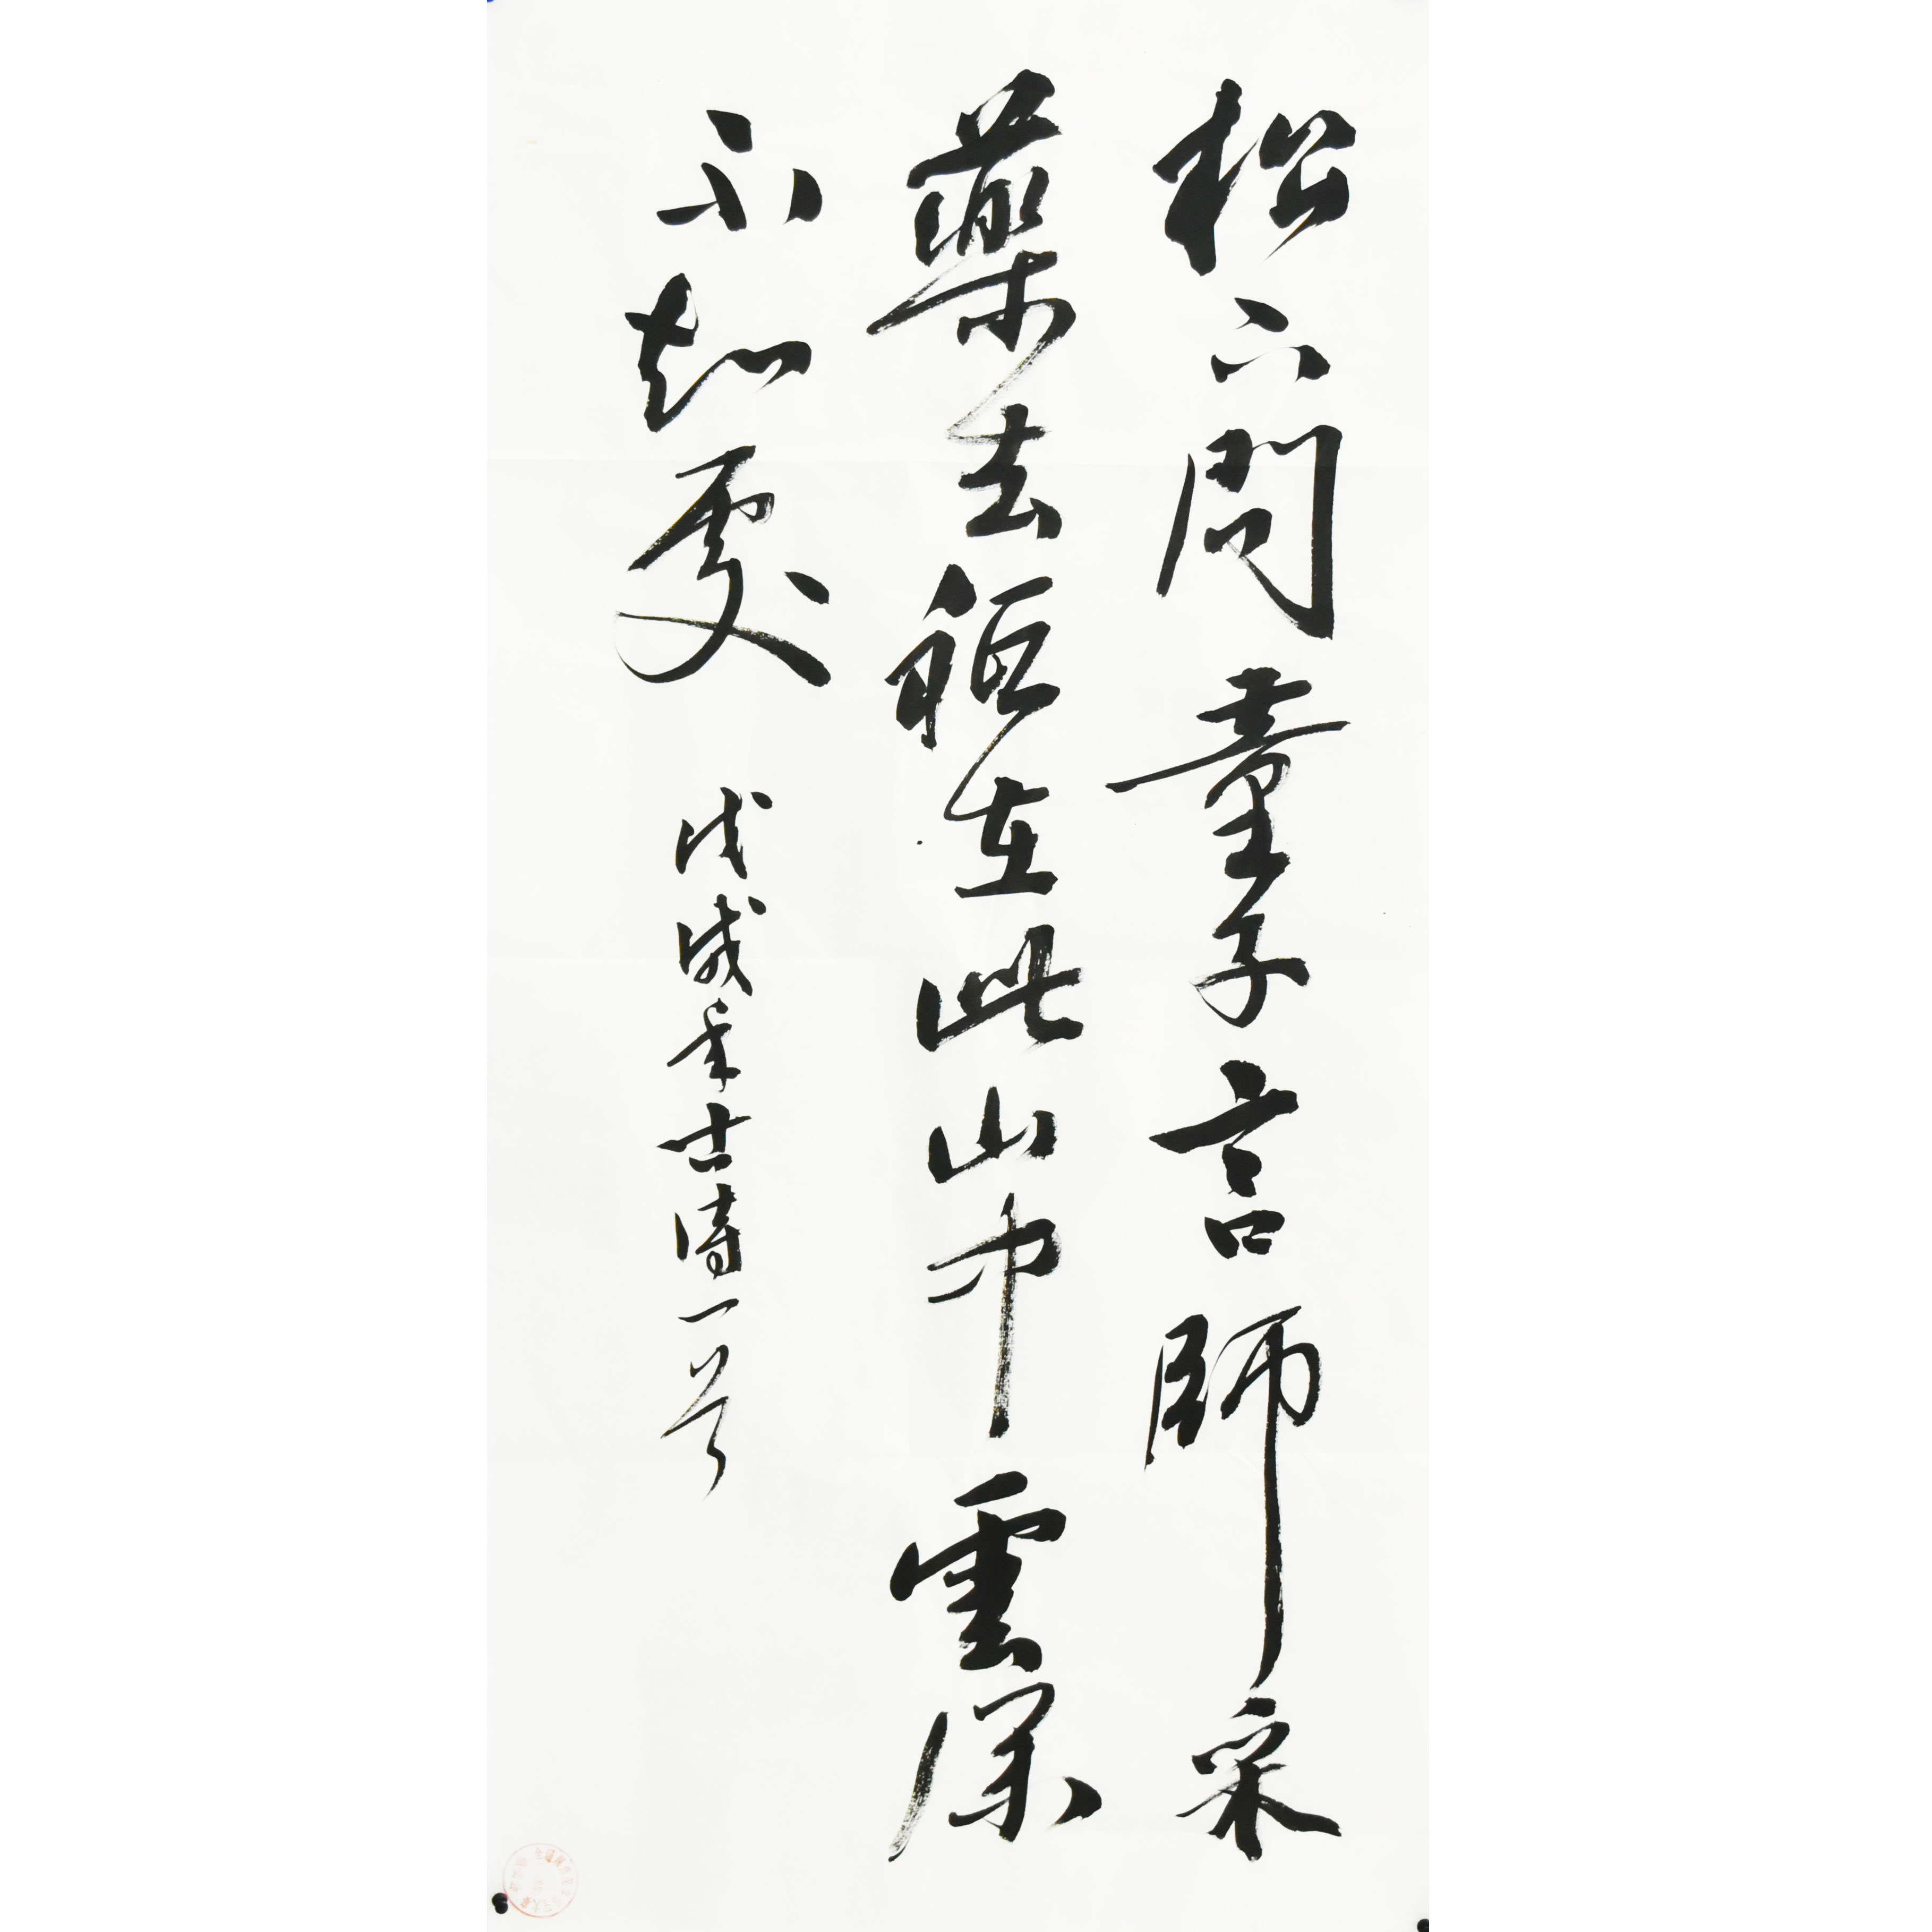 松下問童子言師采
藥去衹在此山中雲深
不知處
戊戌年古詩一首